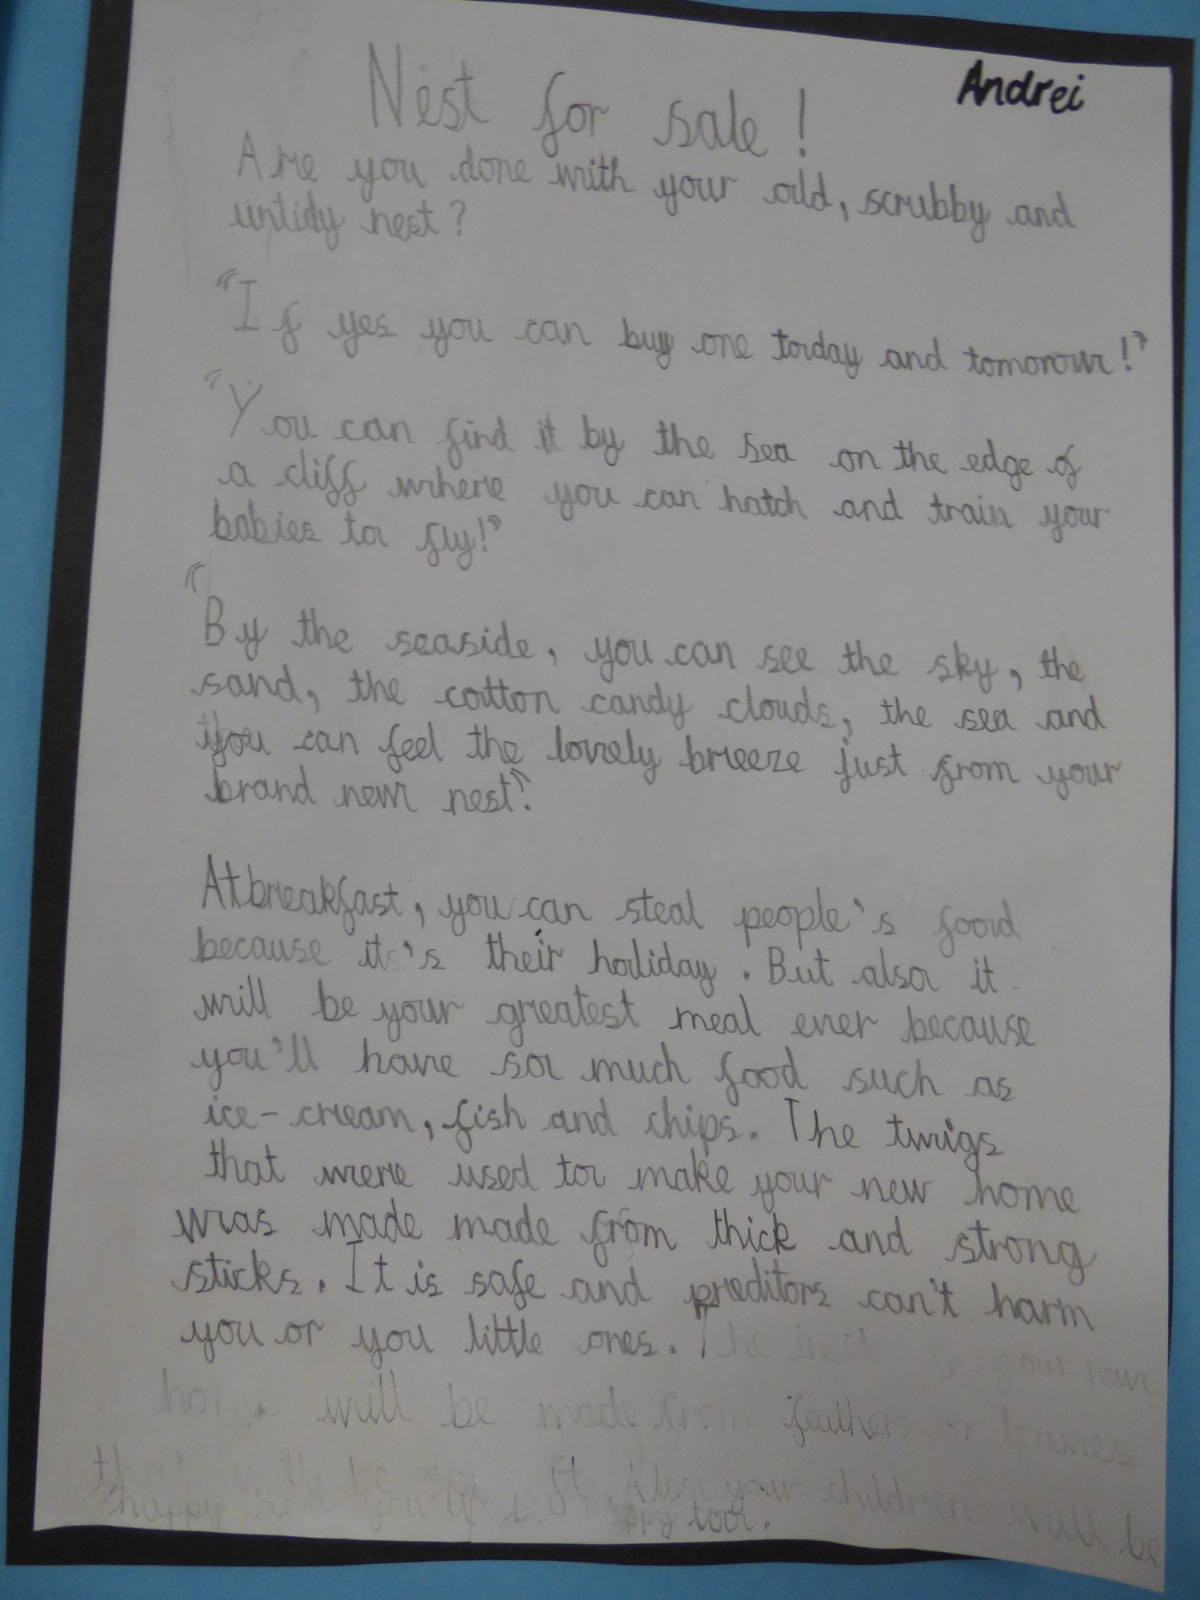 Andrei
Nest for sale!
Are you done with your old, scrubby and
untidy nest?
"If yes you can buy one today and tomorow!"
"You can find it by the sea on the edge of
a cliff where you can hatch and train your
babies to fly!"
"
By the seaside, you can see the sky, the
sand, the cotton candy clouds, the sea and
you can feel the lovely breeze just from your
brand new nest".
At breakfast, you can steal people's food
because it's their holiday. But also it
will be your greatest meal ever because
you'll have so much food such as
ice-cream, fish and chips. The twigs
that were used to make your new home
was made made from thick and strong
sticks. It is safe and preditors can't harm
you or you little ones. The inside your new
will be made from feathers or leaves
that will be Also your children will be
happy and happy too.